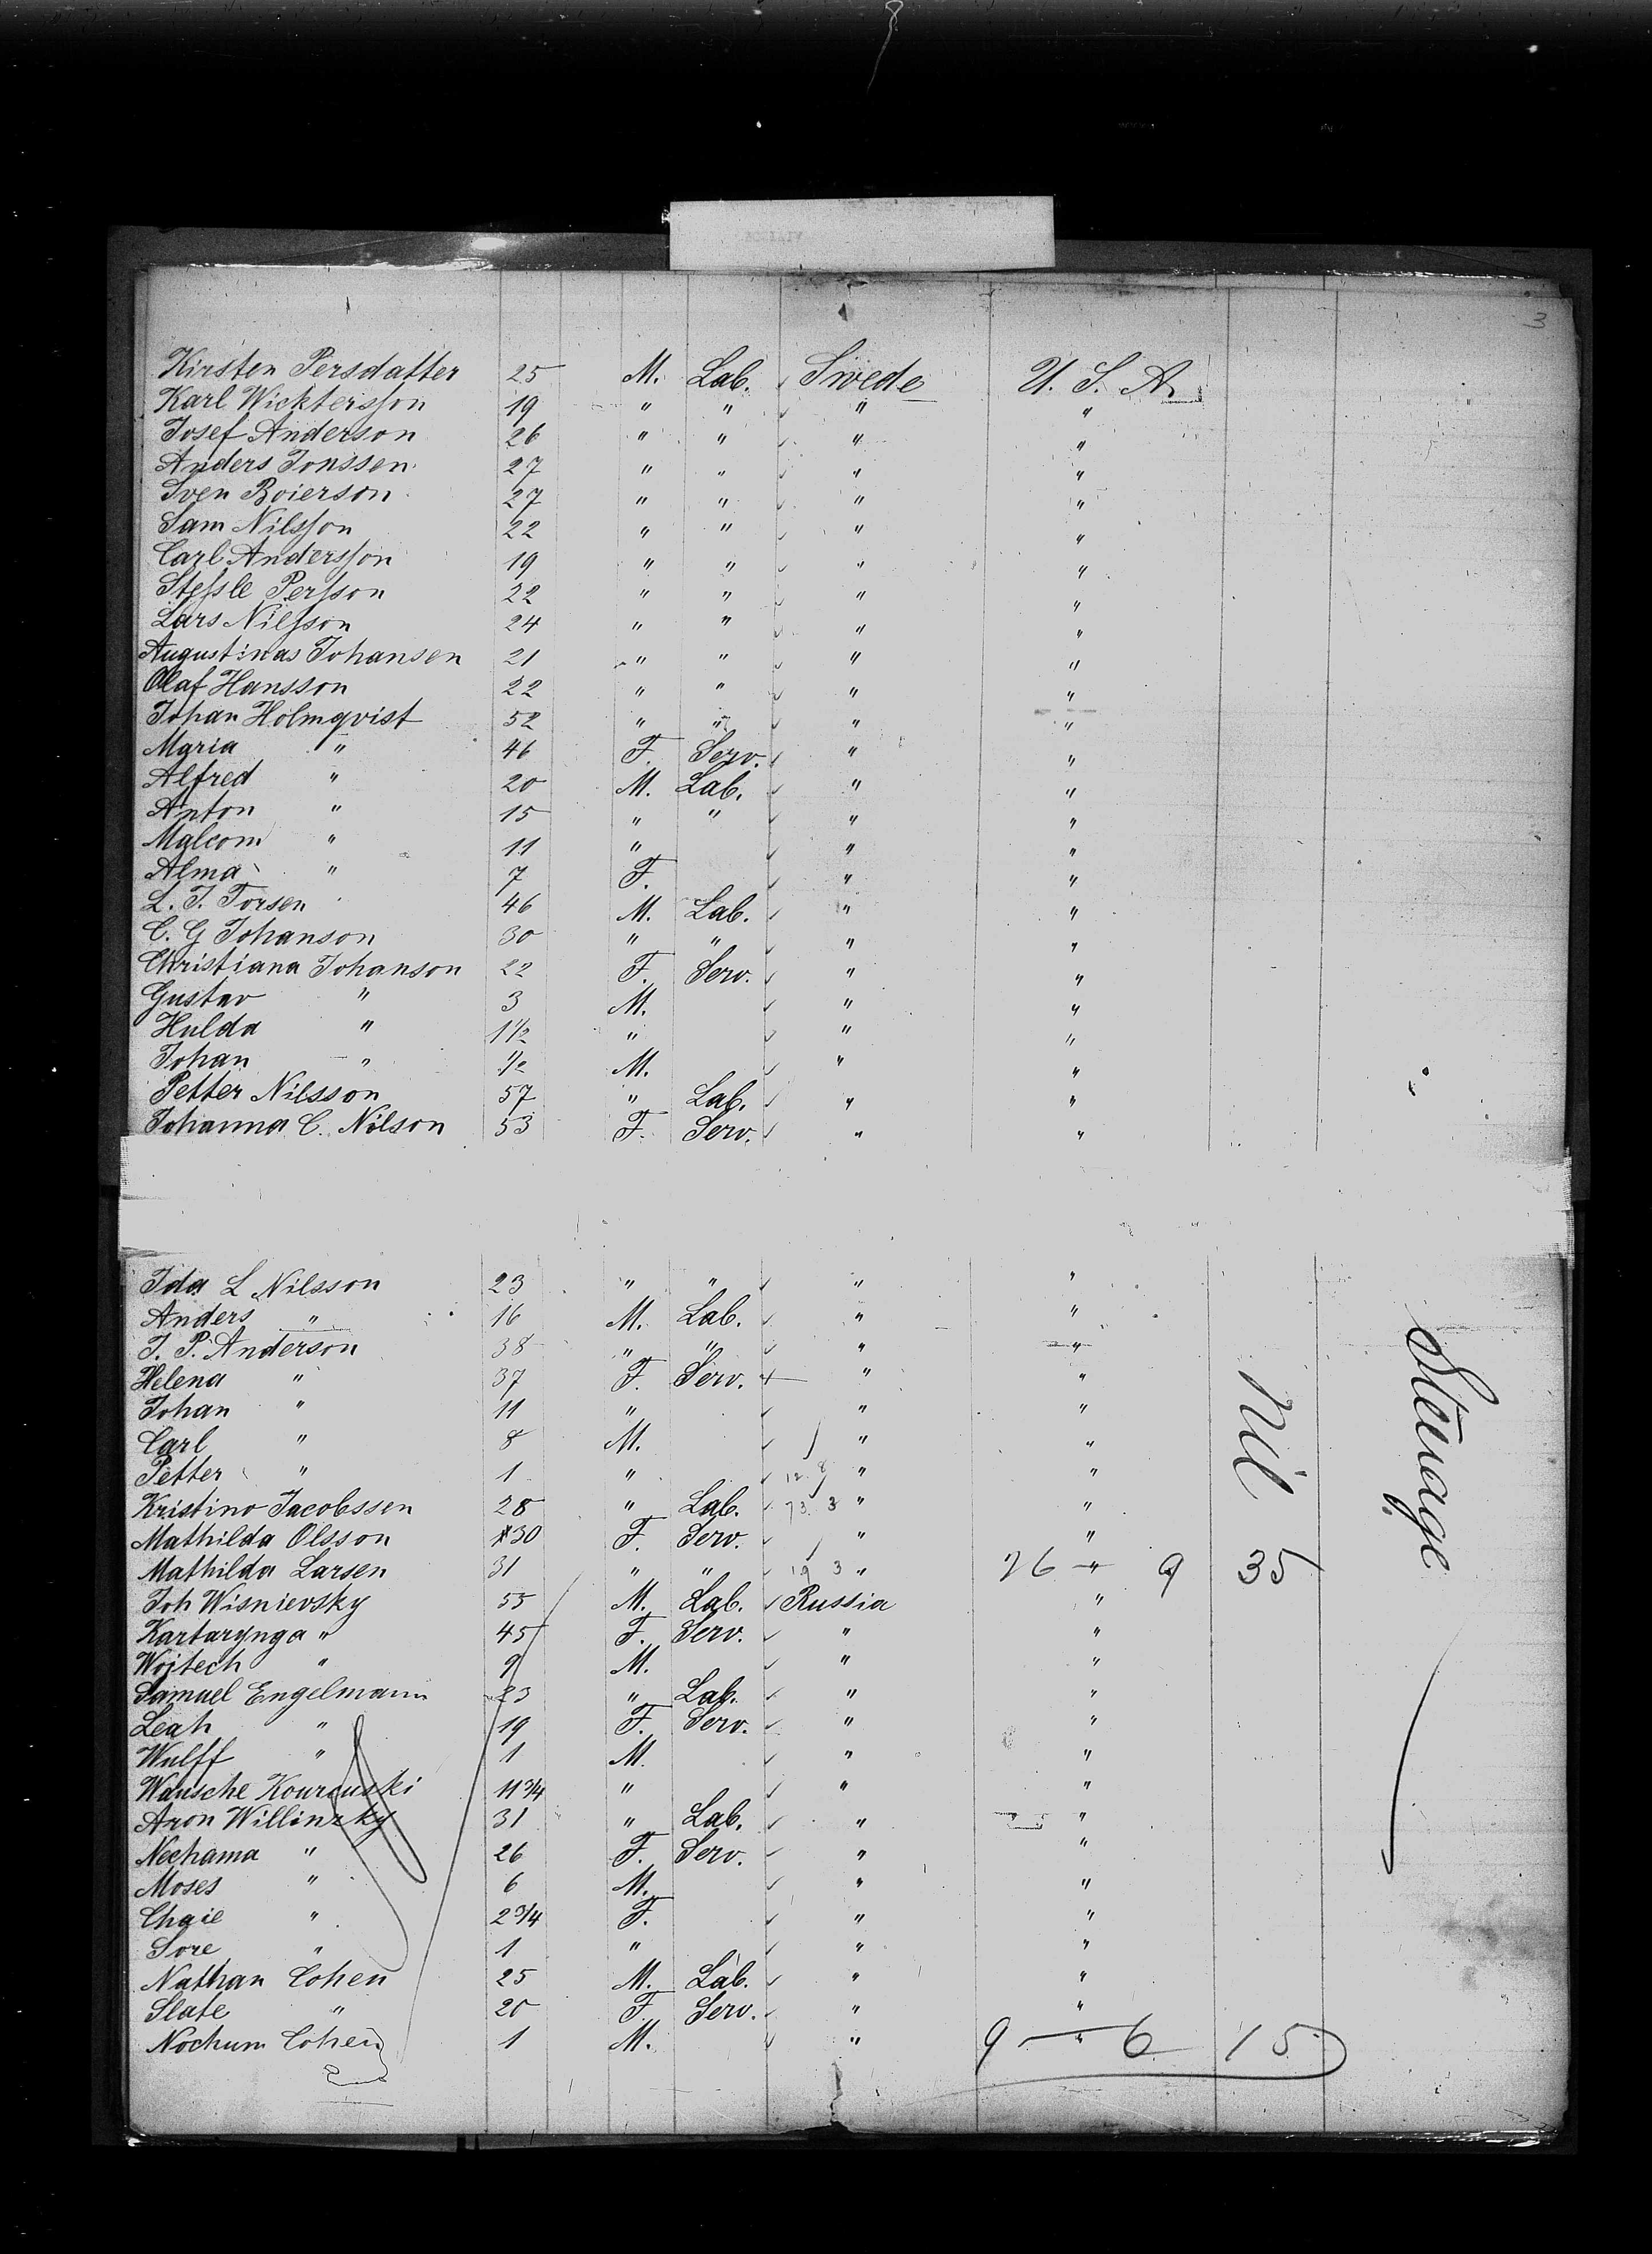 3
Kirsten Persdatter 25 M. Lab. Swede U. S. A.
Karl Wicktersson 19 " " " "
Josef Anderson 26 " " " "
Anders Jonssen 27 " " " "
Sven Boierson 27 " " " "
Sam Nilsson 22 " " " "
Carl Andersson 19 " " " "
Stessle Persson 22 " " " "
Lars Nilsson 24 " " " "
Augustinas Johansen 21 " " " "
Olaf Hansson 22 " " " "
Johan Holmqvist 52 " " " "
Maria " 46 F. Serv. " "
Alfred " 20 M. Lab. " "
Anton " 15 " " " "
Malcom " 11 " " "
Alma " 7 F. " "
L. J. Torsen 46 M. Lab. " "
C. G Johanson 30 " " " "
Christiana Johanson 22 F. Serv. " "
Gustav " 3 M. " "
Hulda " 1 1/2 " " "
Johan " 1/2 M. " "
Petter Nilsson 57 " Lab. " "
Johanna C. Nilson 53 F. Serv. " "
Ida L Nilsson 23 " " " "
Anders " 16 M. Lab. " "
J. P. Anderson 38 " " " "
Helena " 37 F. Serv. " "
Johan " 11 " " "
Carl " 8 M. " "
Petter " 1 " 12 8 " "
Kristino Jacobssen 28 " Lab. 73. 3 " "
Mathilda Olsson 30 F. Serv. " "
Mathilda Larsen 31 " " 19 3 " 26 " 9 35
Joh Wisnievsky 55 M. Lab. Russia "
Kartarynga " 45 F. Serv. " "
Wojtech " 9 M. " "
Samuel Engelmann 23 " Lab. " "
Leah " 19 F. Serv. " "
Wulff " 1 M. " "
Wausche 11 3/4 " " "
Aron Willinzky 31 " Lab. " "
Nechama " 26 F. Serv. " "
Moses " 6 M. " "
Chaie " 2 3/4 F. " "
Sore " 1 " " "
Nathan Cohen 25 M. Lab. " "
Slate " 20 F. Serv. " "
Nochum Cohen 1 M. " 9 " 6 15
Nil
Steuage